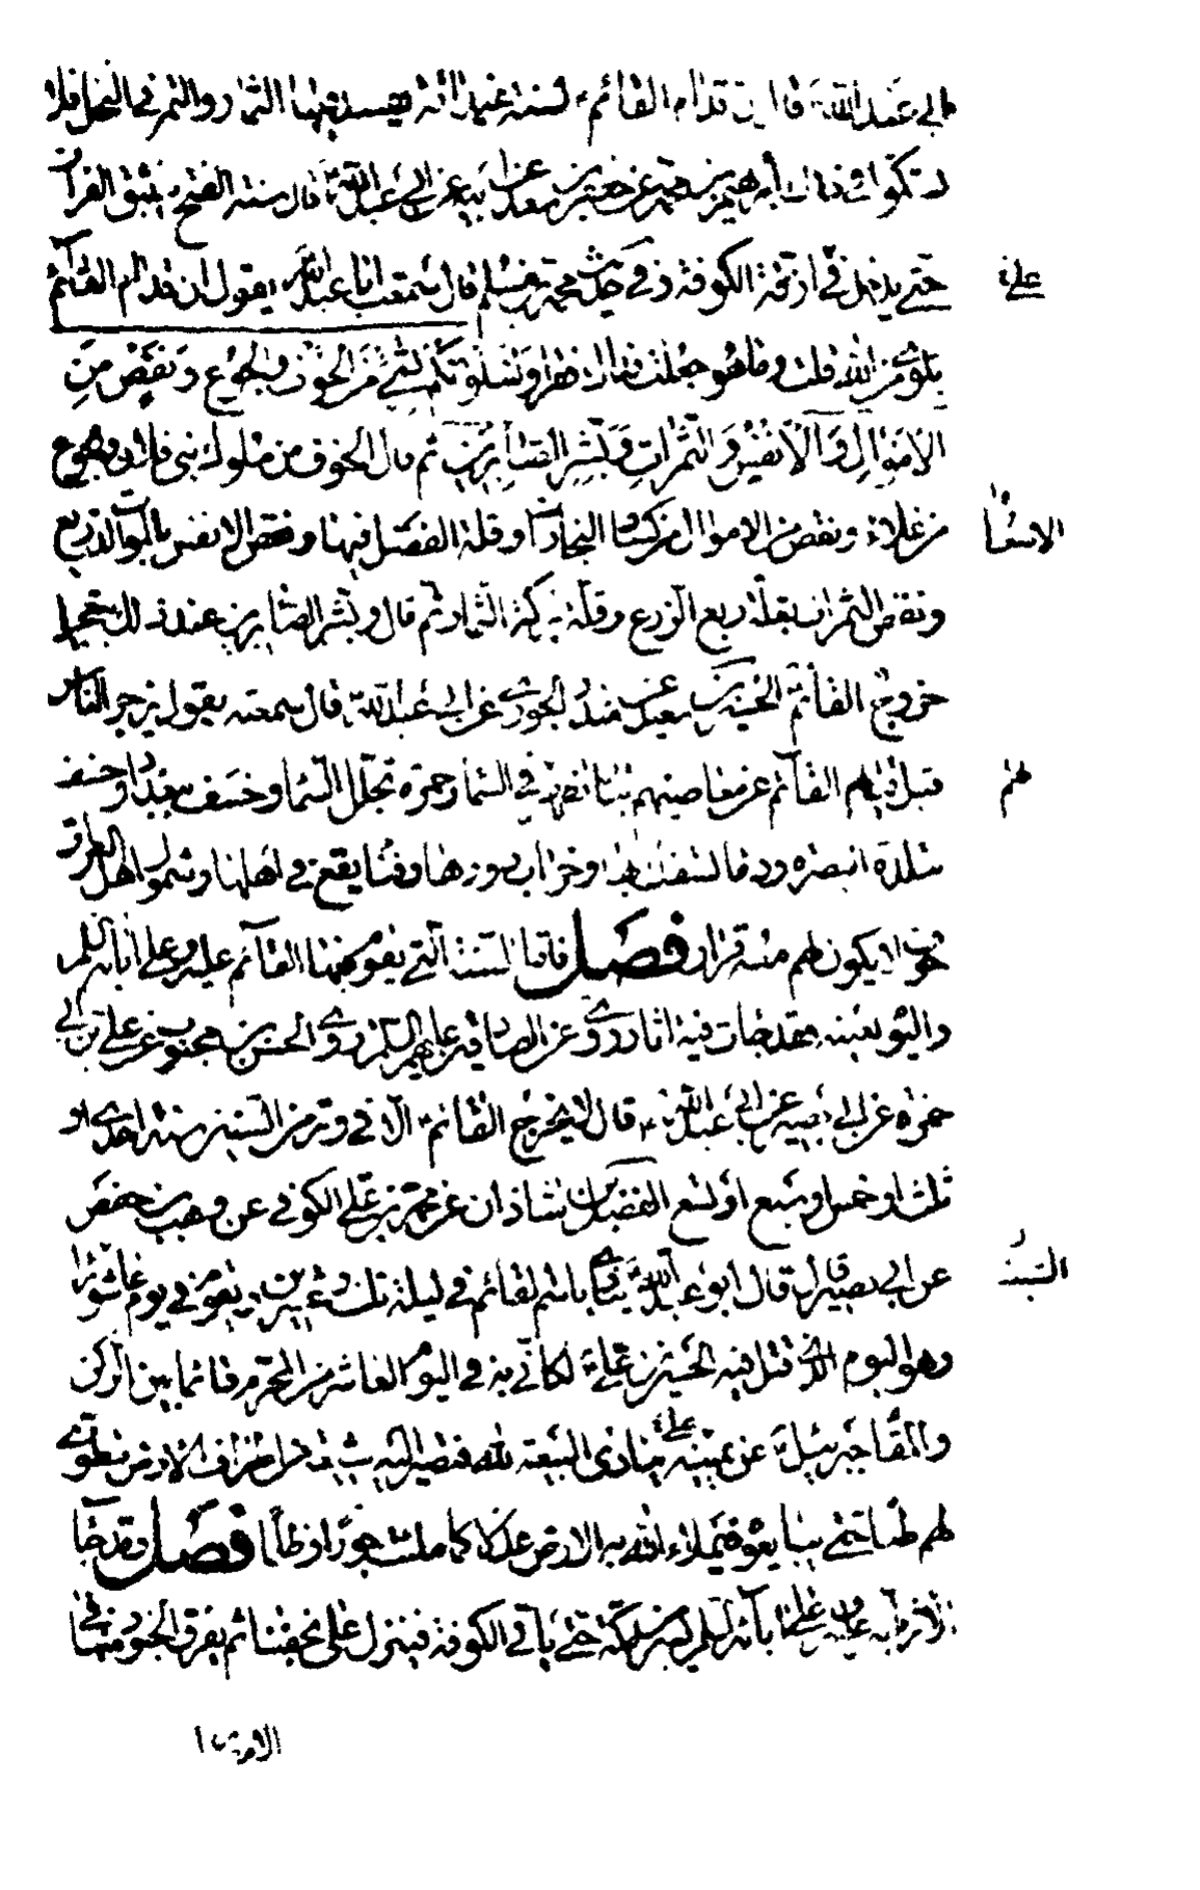 ابي عبد الله ع قال ان قدام القائم ع لسنة غيداقة يفسد فيها الثمار والتمر في النخل فلا
تشكوا في ذلك ابرهيم بن محمد عن جعفر بن سعد عن ابيه عن ابي عبد الله ع قال سنة الفتح ينبثق الفرات
حتى يدخل في ازقة الكوفة و في حديث محمد بن مسلم قال سمعت ابا عبد الله ع يقول ان قدام القائم
بلوى من الله قلت وما هو جعلت فداك فقرأ وَلَنَبْلُوَنَّكُمْ بِشَيْءٍ مِنَ الْخَوْفِ وَالْجُوعِ وَنَقْصٍ مِنَ
الْأَمْوَالِ وَالْأَنْفُسِ وَالثَّمَرَاتِ وَبَشِّرِ الصَّابِرِينَ ثم قال الخوف من ملوك بني فلان والجوع
من غلاء ونقص من الاموال من كساد التجارات وقلة الفضل فيها ونقص الانفس بالموت الذريع
ونقص الثمرات بقلة ريع الزرع وقلة بركة الثمار ثم قال وبشر الصابرين عند ذلك بتعجيل
خروج القائم ع الحسين بن سعيد عن منذر الجوزي عن ابي عبد الله ع قال سمعته يقول يزجر الناس
قبل قيام القائم عن معاصيهم بنار تظهر في السماء وحمرة تجلل السماء وخسف ببغداد وخسف
ببلدة البصرة ودماء تسفك بها وخراب دورها وفناء يقع في اهلها وشمول اهل العراق
خوف لا يكون لهم معه قرار فصل فاما السنة التي يقوم فيها القائم عليه وعلى آبائه السلم
واليوم بعينه فقد جاءت فيه آثار روى عن الصادقين عليهم السلم روى الحسن بن محبوب عن علي بن ابي
حمزة عن ابي بصير عن ابي عبد الله ع قال لا يخرج القائم ع الا في وتر من السنين سنة احدى او
ثلث او خمس او سبع او تسع الفضل بن شاذان عن محمد بن علي الكوفي عن وهب بن حفص
عن ابي بصير قال قال ابو عبد الله ع ينادى باسم القائم في ليلة ثلث وعشرين ويقوم في يوم عاشورا
وهو اليوم الذي قتل فيه الحسين بن علي ع لكأني به في اليوم العاشر من المحرم قائما بين الركن
والمقام جبرئيل ع عن يمينه ينادي البيعة لله فتصير اليه شيعته من اطراف الارض تطوى
لهم طيا حتى يبايعوه فيملاء الله به الارض عدلا كما ملئت جورا وظلما فصل وقد جاء
الاثر بانه عليه وعلى آبائه السلم يسير من مكة حتى يأتي الكوفة فينزل على نجفنا ثم يفرق الجنود منها في
علي ع
الاسعار
لهم
السند
الامصار